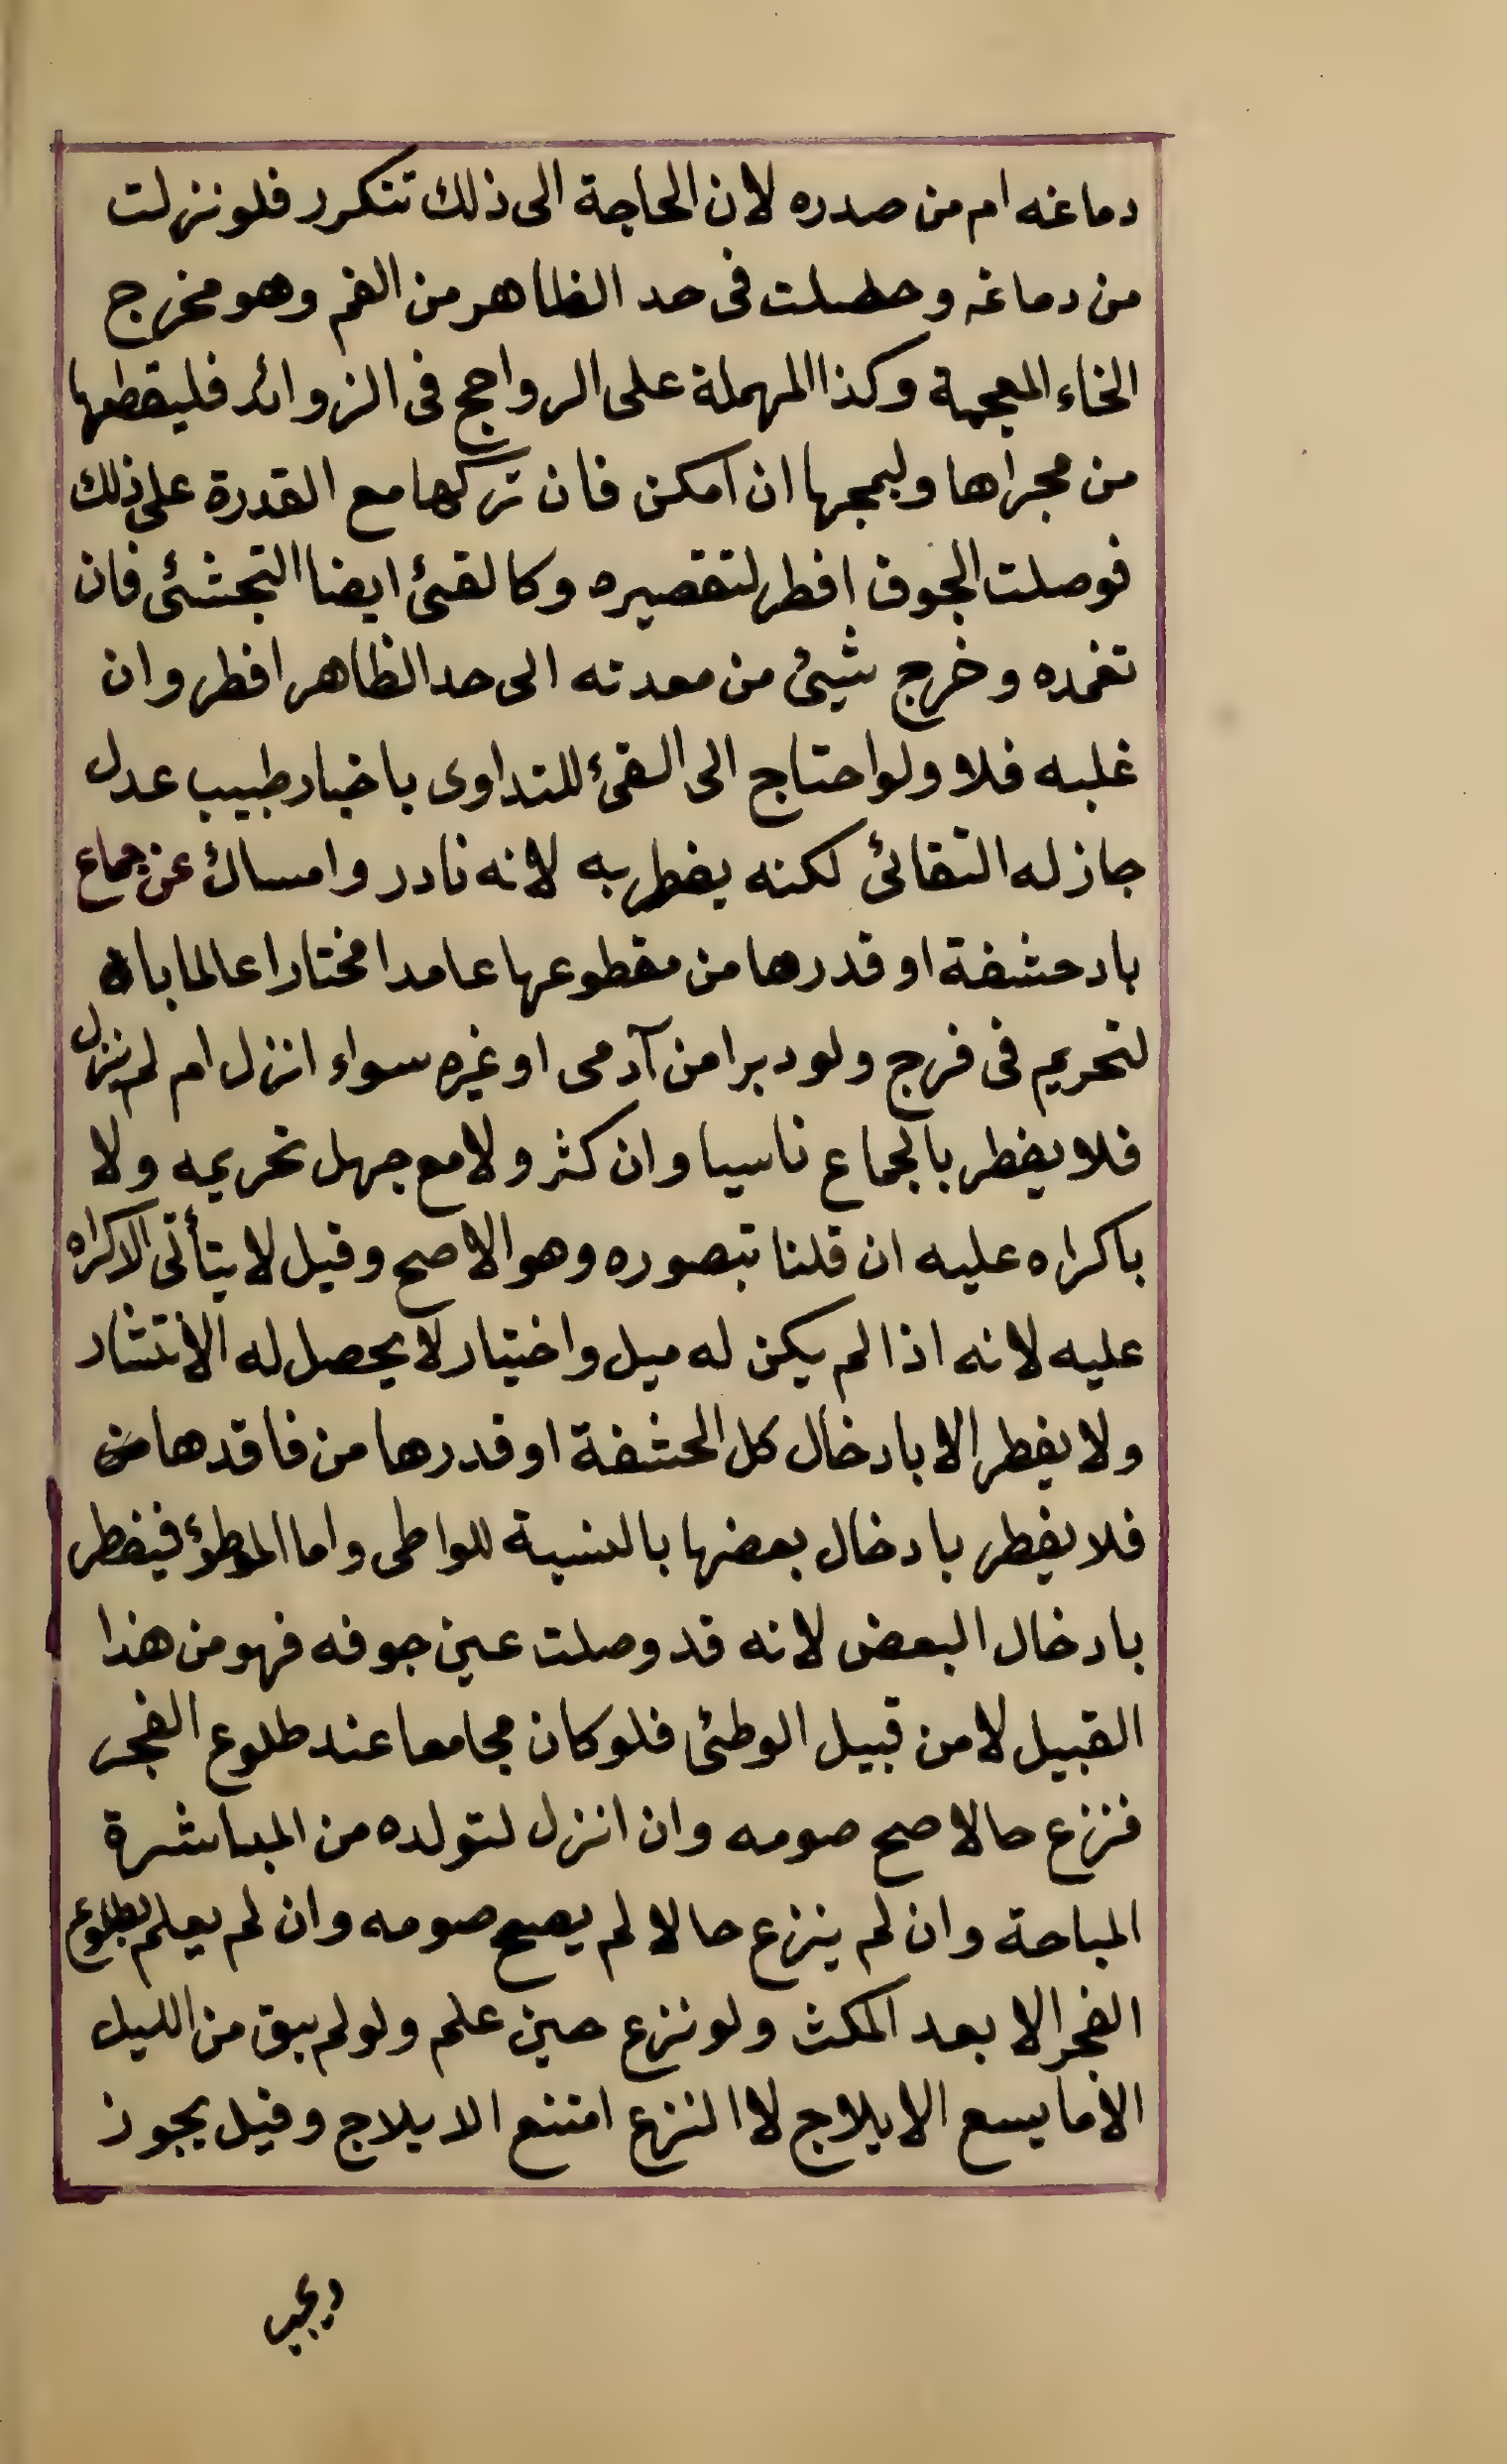 دماغه ام من صدره لان الحاجة الى ذلك تتكرر فلو نزلت
من دماغه وحصلت فى حد الظاهر من الفم وهو مخرج
الخاء المعجمة وكذا المهملة على الرواجح فى الزوائد فليقطعها
من مجراها وليمجها ان امكن فان تركها مع القدرة على ذلك
فوصلت الجوف افطر لتقصيره وكالقئ ايضا التجشئ فان
تعمده وخرج شيئ من معدته الى حد الظاهر افطر وان
غلبه فلا ولو احتاج الى القئ للتداوى باخبار طبيب عدل
جاز له التقائ لكنه يفطر به لانه نادر وامساك عن جماع
باد حشفة او قدرها من مقطوعها عامدا مختارا عالما باه
لتحريم فى فرج ولو دبرا من آدمى او غيره سواء انزل ام لم ينزل
فلا يفطر بالجماع ناسيا وان كثر ولا مع جهل تحريمه ولا
باكراه عليه ان قلنا بتصوره وهو الاصح وقيل لا يتأتى الاكراه
عليه لانه اذا لم يكن له ميل واختيار لا يحصل له الانتشار
ولا يفطر الا بادخال كل الحشفة او قدرها من فاقدها من
فلا يفطر بادخال بعضها بالنسبة للواطى واما الموطؤ فيفطر
بادخال البعض لانه قد وصلت عين جوفه فهو من هذا
القبيل لا من قبيل الوطئ فلو كان مجامعا عند طلوع الفجر
فنزع حالا صح صومه وان انزل لتولده من المباشرة
المباحة وان لم ينزع حالا لم يصح صومه وان لم يعلم بطلوع
الفجر الا بعد المكث ولو نزع حين علم ولو لم يبق من الليل
الا ما يسع الايلاج لا النزع امتنع الايلاج وقيل يجوز